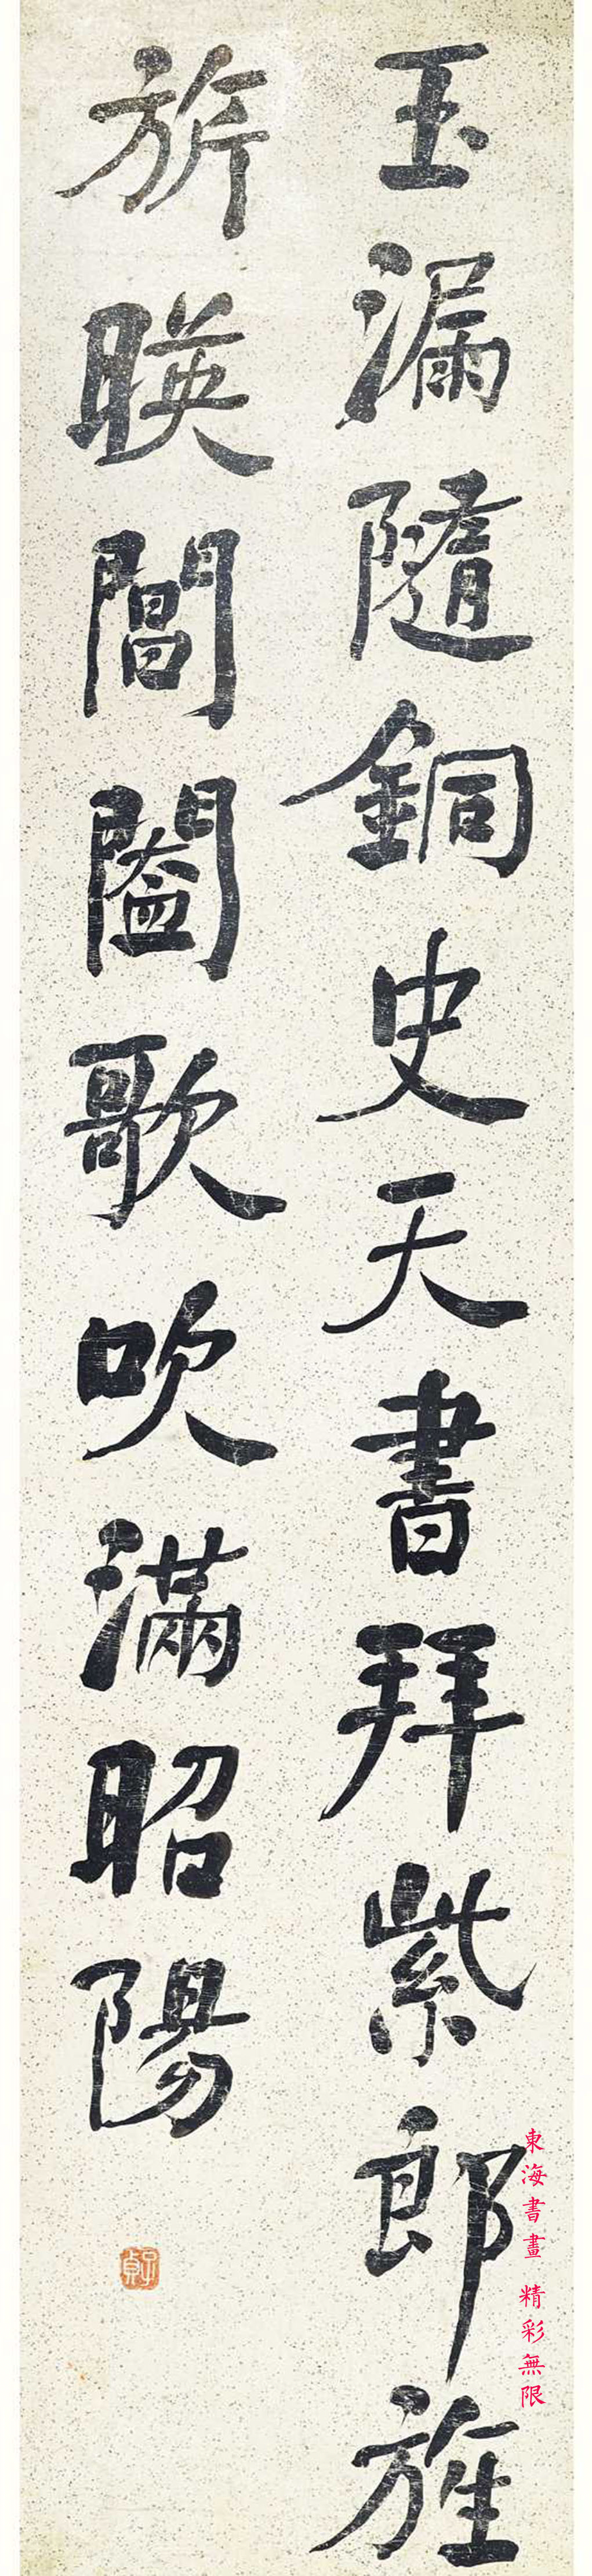 玉漏隨銅史天書拜紫郎旌
旂暎閶闔歌吹滿昭陽
子貞
東海書畫 精彩無限